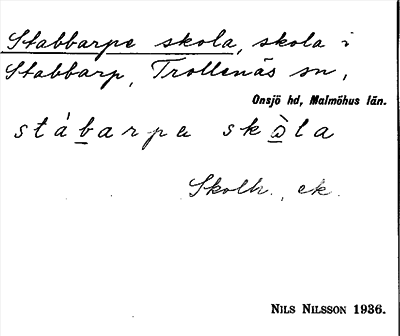 Stabbarps skola, skola i
Stabbarp, Trollenäs sn,
Onsjö hd, Malmöhus län.
stábarpa skòla
Skolh., ek.
NILS NILSSON 1936.